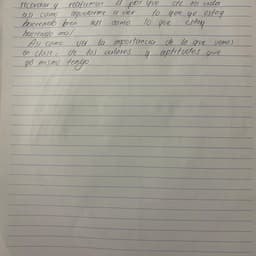 recordar y reafirmar el por que de mi vida
asi como ayudarme a ver lo que yo estoy
haciendo bien asi como lo que estoy
haciendo mal.
Asi como ver la importancia de lo que vemos
en clase, de los valores y aptitudes que
yo mismo tengo